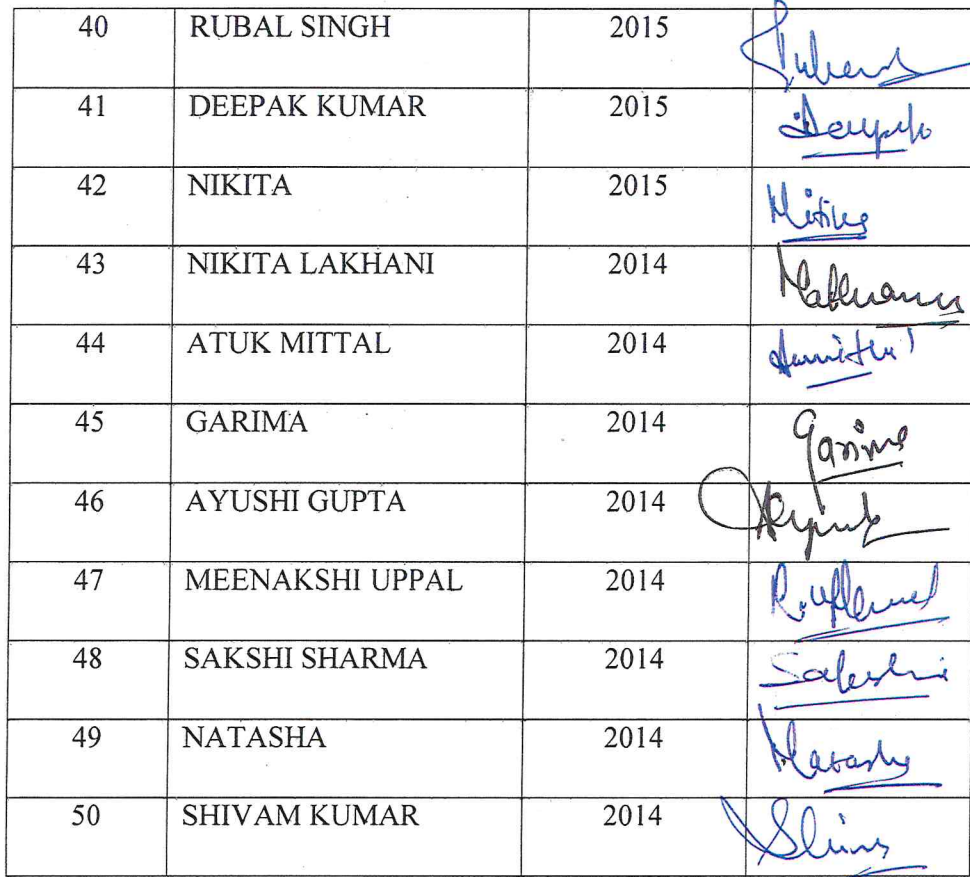 40 RUBAL SINGH 2015
41 DEEPAK KUMAR 2015
42 NIKITA 2015
43 NIKITA LAKHANI 2014
44 ATUK MITTAL 2014
45 GARIMA 2014 Garima
46 AYUSHI GUPTA 2014
47 MEENAKSHI UPPAL 2014
48 SAKSHI SHARMA 2014 Sakshi
49 NATASHA 2014 Natasha
50 SHIVAM KUMAR 2014